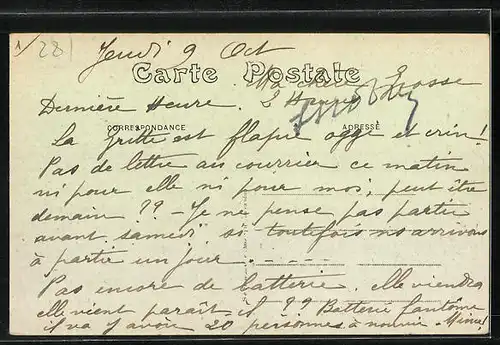 1/281
Jeudi 9 Oct
Carte Postale
Ma chère Gosse
Dernière Heure. 3 Heures
CORRESPONDANCE ADRESSE
La Gritte est flapie et crin!
Pas de lettre au courrier ce matin
ni pour elle ni pour moi, peut être
demain ?? - Je ne pense pas partir
avant samedi si toutefois ns arrivons
à partir un jour. - - - - -
Pas encore de batterie. elle viendra
elle vient paraît il ?? Batterie fantôme
il va y avoir 20 personnes à nourrir. Mince!